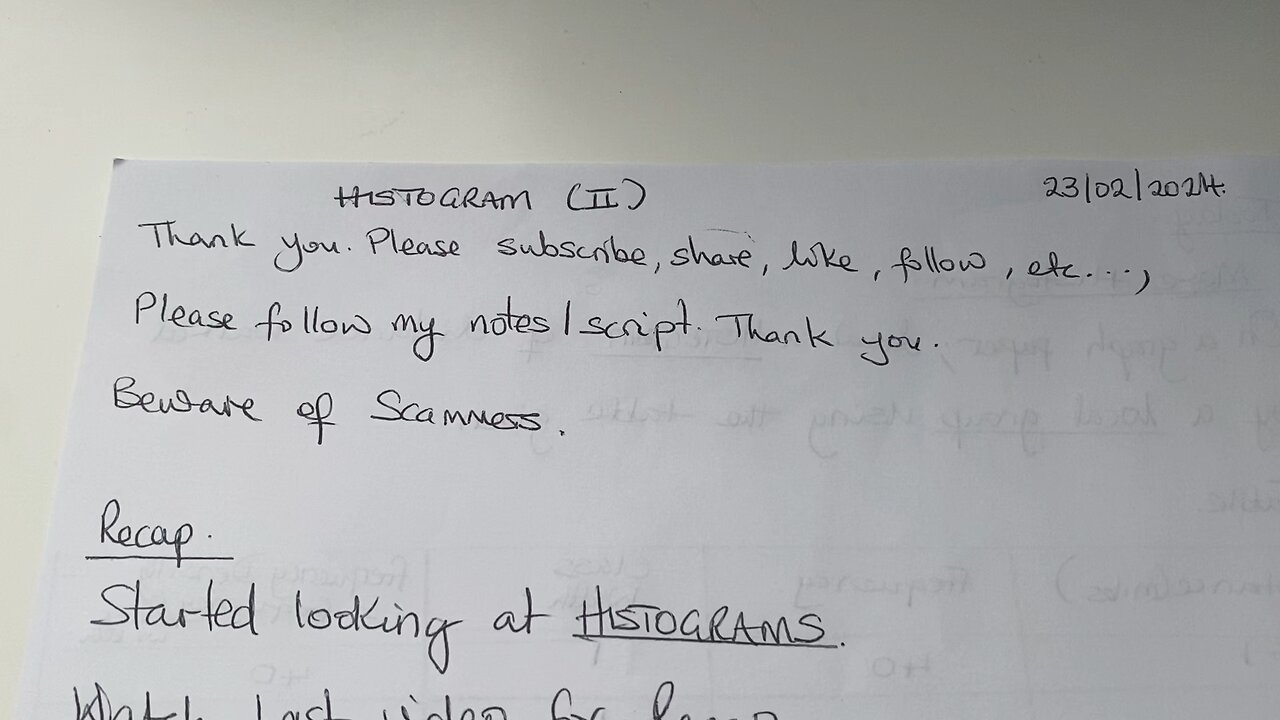 HISTOGRAM (II) 23/02/2024.
Thank you. Please subscribe, share, like, follow, etc....,
Please follow my notes/script. Thank you.
Beware of Scammers.
Recap.
Started looking at HISTOGRAMS.
Watch last video for